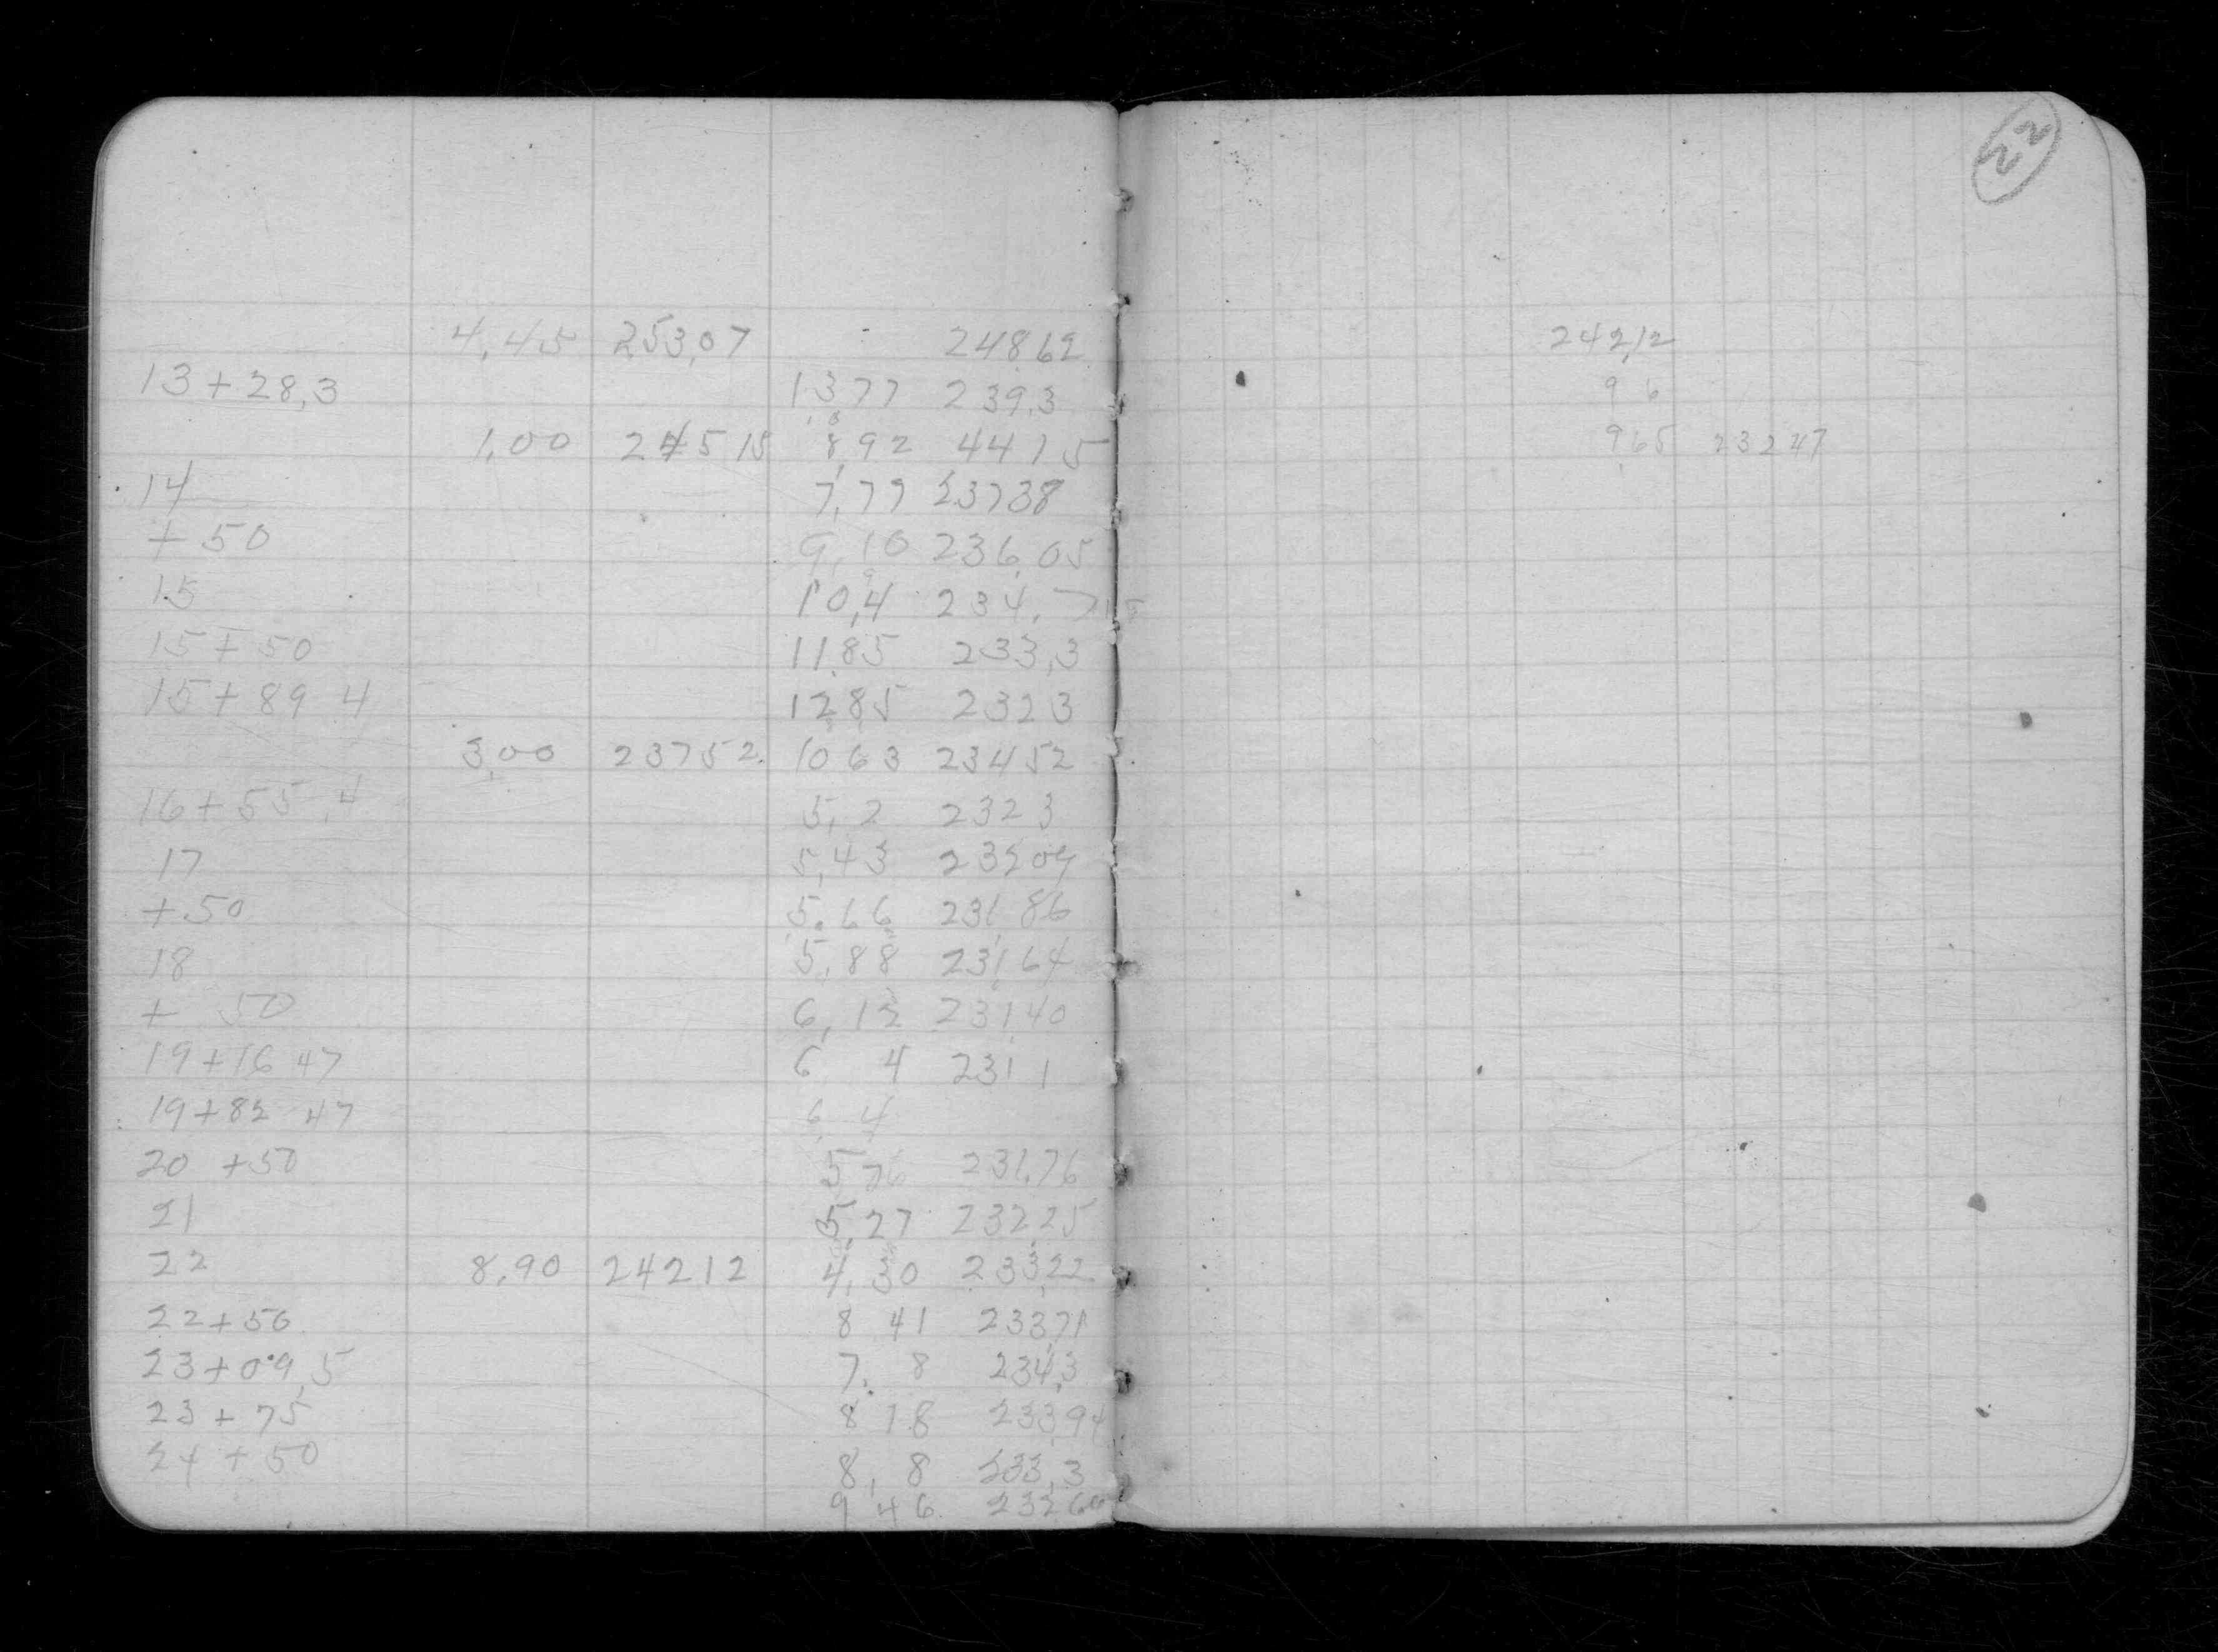 4,45 253,07 248,62
13+28,3 13,77 239,3
1,00 245 15 8,92 44 15
14 7,77 23738
+ 50 9,10 236,05
15 10,4 234,7
15+50 11,85 233,3
15+89 4 1285 2323
3,00 23752 10 63 234 52
16+55,4 5,2 232 3
17 5,43 23209
+50 5,66 231,86
18 5,88 231,64
+ 50 6,12 231,40
19+16 47 6 4 231 1
19+82 47 6,4
20 +50 5,76 231,76
21 5,27 232,25
22 8,90 24212 4,30 233,22
22+50 8 41 233,71
23+09,5 7,8 234,3
23+75 8 18 233,94
24+50 8,8 233,3
9 46 23260
22
242,12
9 6
9,65 232 47